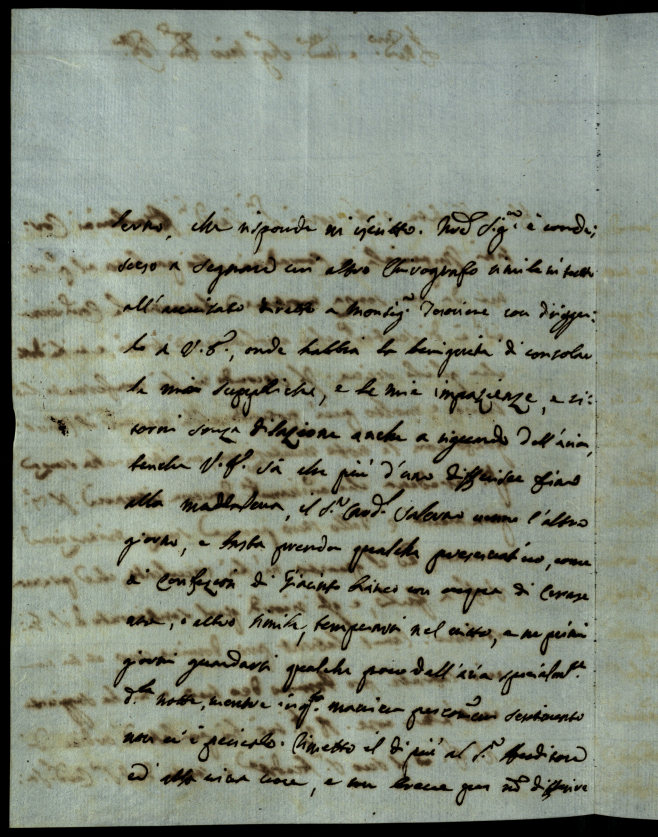 che risponde in iscritto. Nro Sig.re è conde,
sceso a segnare un altro Chirografo simile in tutto
all'accennato diretto a Monsig.r con dirigger,
lo a V.S., onde habbia la benignità di consolar
le mie suppliche, e le mie impazienze, e ri,
torni senza dilazione anche a riguardo dell'aria,
benche V.S. sà che più d'uno differisce fino
alla Maddalena, il S.r Card.l Salerno venne l'altro
giorno, e basta prender qualche preservativo, come
di Confezion di Giacinto bianco con acqua di
o altro simile, temperarsi nel vitto, e ne primi
giorni guardarsi qualche poco dall'aria specialm.te
d.la notte, mentre in q.ta maniera per comun sentimento
non ci è pericolo. Rimetto il di più al S.r Auditore
ed viva voce, e con